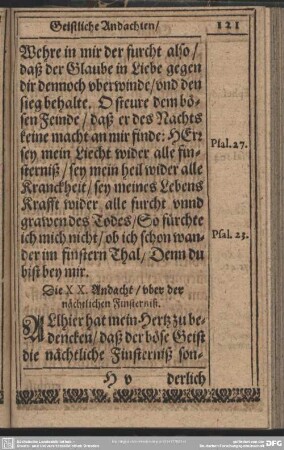 Geistliche Andachten/ 121
Wehre in mir der furcht also/
daß der Glaube in Liebe gegen
dir dennoch vberwinde/vnd den
sieg behalte. O steure dem bö-
sen Feinde/ daß er des Nachts
keine macht an mir finde: HErr
Psal. 27.
sey mein Liecht wider alle fin-
sterniß/ sey mein heil wider alle
Kranckheit/ sey meines Lebens
Krafft wider alle furcht vnnd
grawen des Todes/ So fürchte
ich mich nicht/ ob ich schon wan-
Psal. 23.
der im finstern Thal/ Denn du
bist bey mir.
Die XX. Andacht/ vber der
nächtlichen Finsterniß.
ALlhier hat mein Hertz zu be-
dencken/ daß der böse Geist
die nächtliche Finsterniß son-
H v derlich
DFG